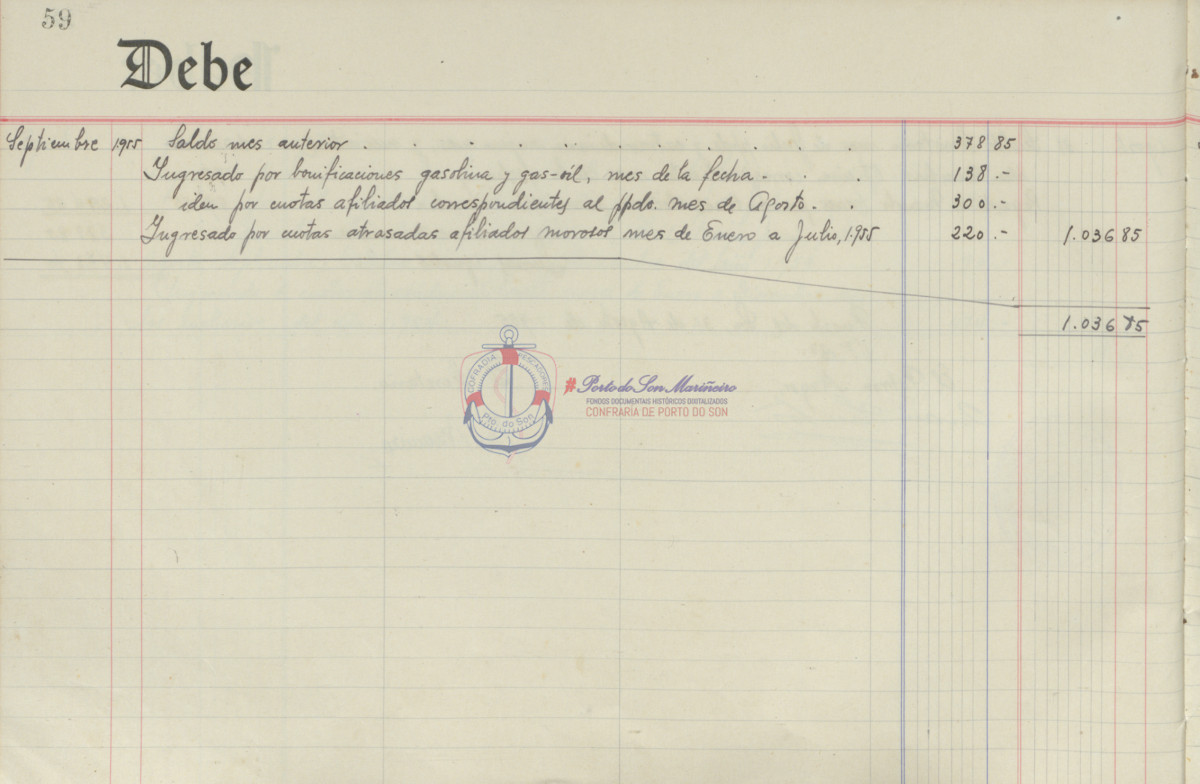 59
Debe
Septiembre 1955 Saldo mes anterior . . . . . . . . . . . . 378 85
Ingresado por bonificaciones gasolina y gas-oil, mes de la fecha - . . 138.-
idem por cuotas afiliados correspondientes al ppdo. mes de Agosto . . 300.-
Ingresado por cuotas atrasadas afiliados morosos mes de Enero a Julio, 1.955 220.- 1.036 85
1.036 85
COFRADIA PESCADORES
Pto. do Son
#Porto do Son Mariñeiro
FONDOS DOCUMENTAIS HISTÓRICOS DIXITALIZADOS
CONFRARÍA DE PORTO DO SON